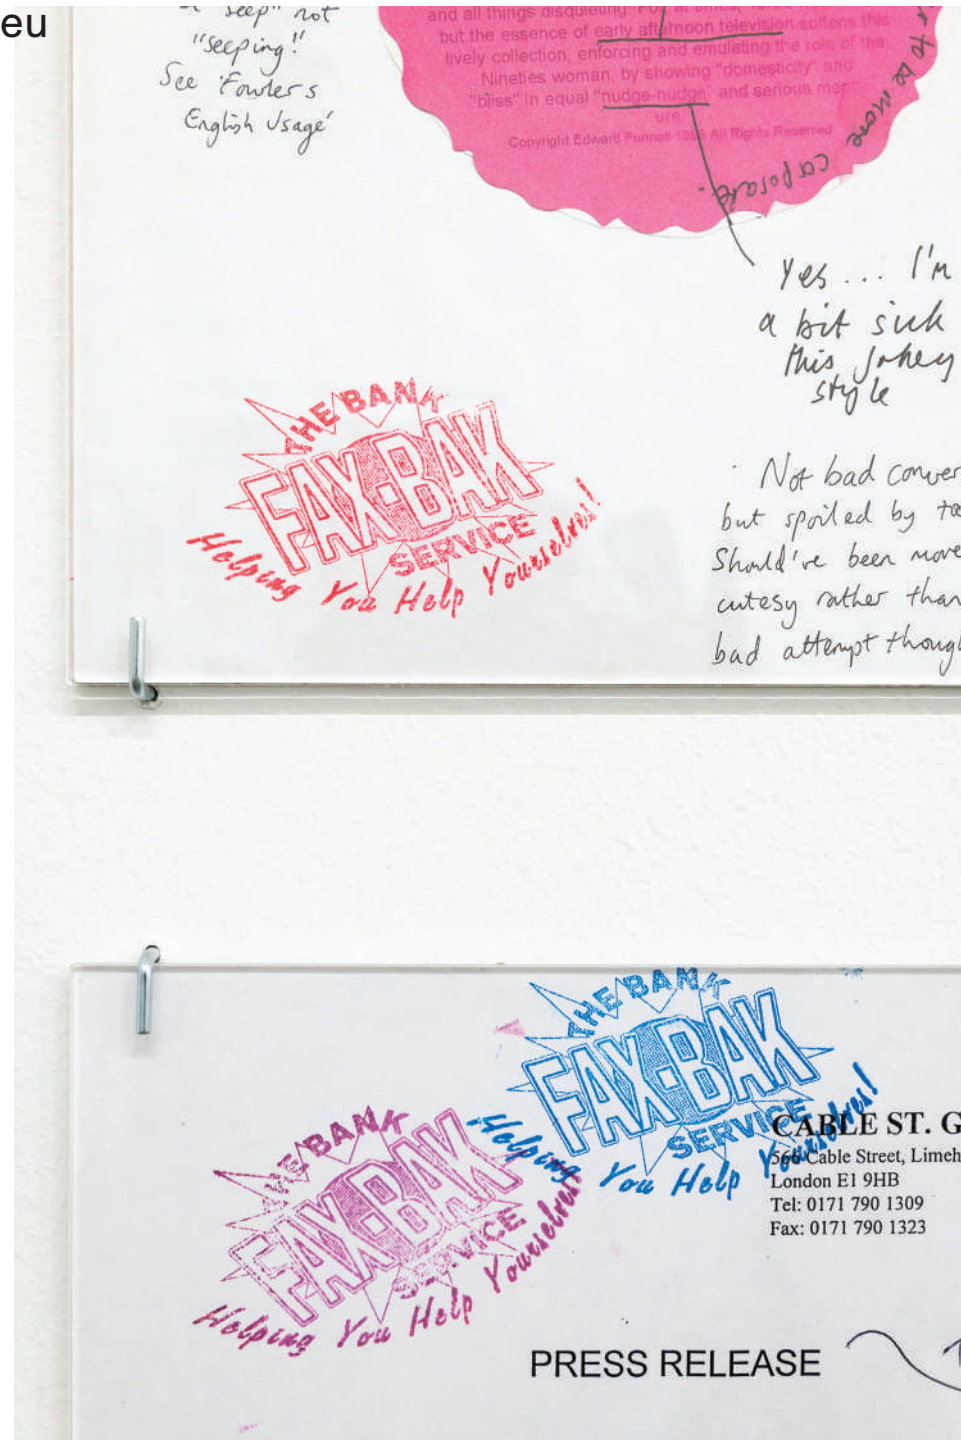 eu
"seep" not
"seeping!"
See 'Fowlers
English Usage'
and all things disquieting.
but the essence of early afternoon television softens this
lively collection, enforcing and emulating the role of the
Nineties woman, by showing "domesticity" and
"bliss" in equal "nudge-nudge" and serious
ure.
Copyright Edward All Rights Reserved
to be more
Yes... I'm
a bit sick
this jokey
style
THE BANK
FAX-BAK
SERVICE
Helping You Help Yourselves!
Not bad
but spoiled by
Should've been more
cutesy rather than
bad attempt though
THE BANK
FAX-BAK
SERVICE
Helping You Help Yourselves!
THE BANK
FAX-BAK
SERVICE
Helping You Help Yourselves!
CABLE ST. G
566 Cable Street, Limeh
London E1 9HB
Tel: 0171 790 1309
Fax: 0171 790 1323
PRESS RELEASE